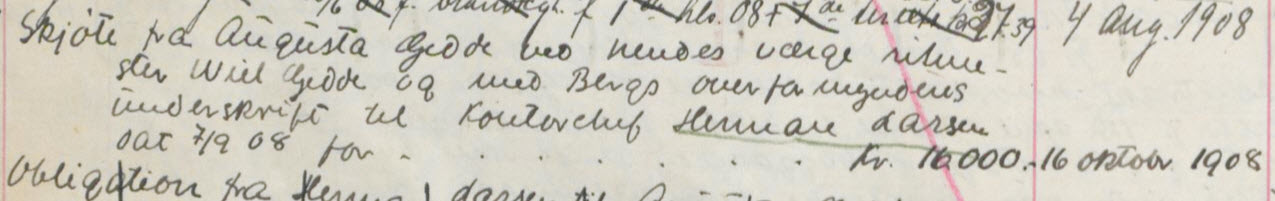 08 4 Aug. 1908
Skjöte fra Augusta Gedde ved hendes værge ritme-
ster Wiel Gedde og med Bergs overformynderis
underskrift til Kontorchef Herman Larsen
dat 7/9 08 for . . . . . . . Kr. 16000.- 16 oktobr 1908
Obligation fra Herman Larsen til